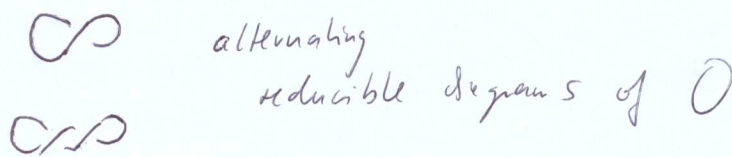 alternating
reducible diagrams of O